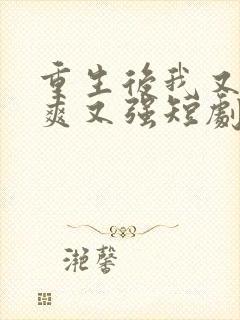 重生後我又
爽又強短劇
滟馨